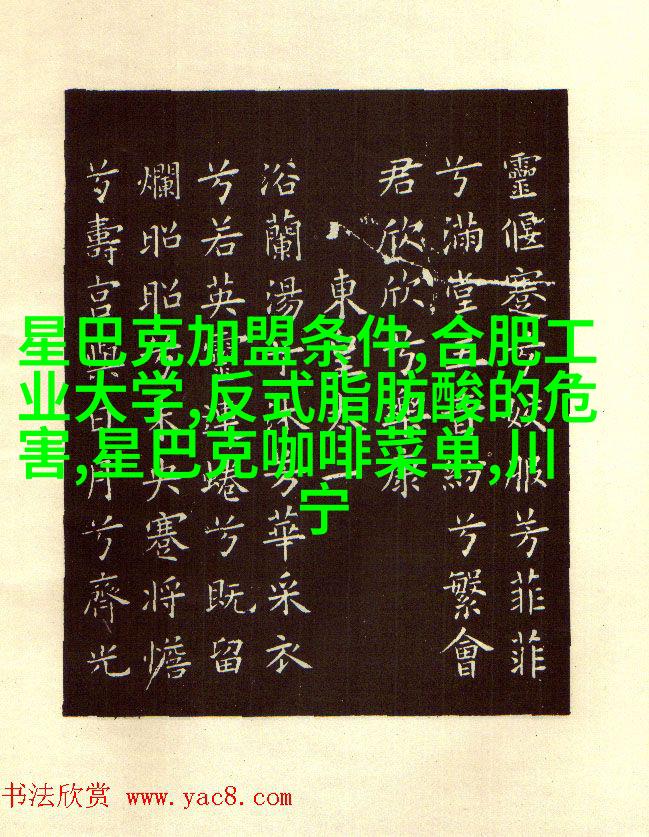 靈偃蹇兮姣服芳菲菲
兮滿堂五音紛兮繁會
君欣欣兮樂康
東皇太一
浴蘭湯兮沐芳華采衣
兮若英靈連蜷兮既留
爛昭昭兮未央蹇將憺
兮壽宮與日月兮齊光
星巴克加盟条件,合肥工
业大学,反式脂肪酸的危
害,星巴克咖啡菜单,川
宁
书法欣赏 www.yac8.com